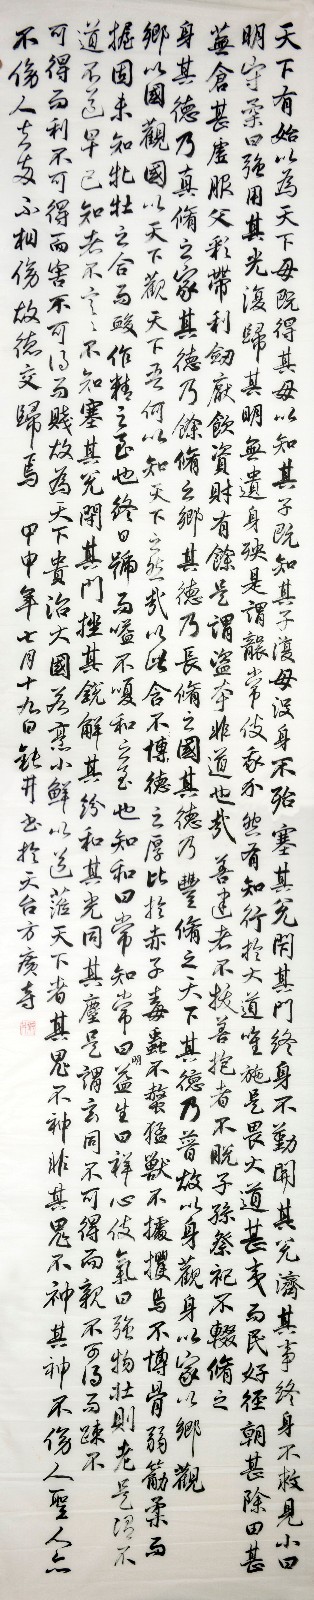 天下有始以為天下母既得其母以知其子既知其子復母沒身不殆塞其兌閉其門終身不勤開其兌濟其事終身不救見小曰
明守柔曰強用其光復歸其明無遺身殃是謂襲常使我介然有知行於大道唯施是畏大道甚夷而民好徑朝甚除田甚
蕪倉甚虛服文彩帶利劍厭飲資財有餘是謂盜夸非道也哉善建者不拔善抱者不脫子孫祭祀不輟脩之
身其德乃真脩之家其德乃餘脩之鄉其德乃長脩之國其德乃豐脩之天下其德乃普故以身觀身以家以鄉觀
鄉以國觀國以天下觀天下吾何以知天下之然哉以此含不博德之厚比於赤子毒蟲不螫猛獸不據攫鳥不博骨弱筋柔而
握固未知牝牡之合而酸作精之至也終日號而嗌不嗄和之至也知和曰常知常曰明益生曰祥心使氣曰強物壯則老是謂不
道不道早已知者不言言不知塞其兌閉其門挫其銳解其紛和其光同其塵是謂玄同不可得而親不可得而疎不
可得而利不可得而害不可得而賤故為天下貴治大國若烹小鮮以道蒞天下者其鬼不神非其鬼不神其神不傷人聖人亦
不傷人夫兩不相傷故德交歸焉 甲申年七月十九日 井書於天台方廣寺